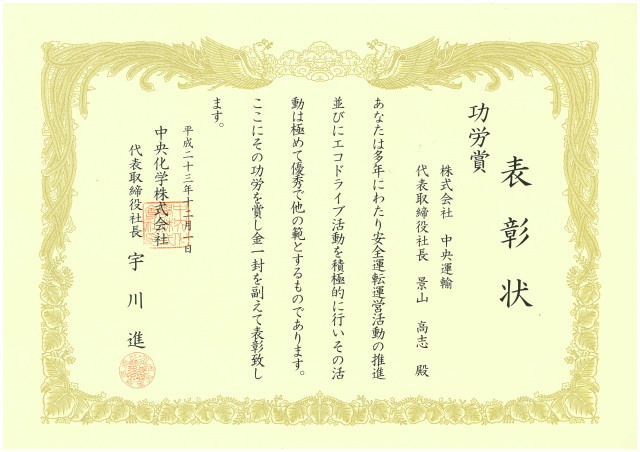 表彰状
功労賞
株式会社 中央運輸
代表取締役社長 景山 高志 殿
あなたは多年にわたり安全運転運営活動の推進
並びにエコドライブ活動を積極的に行いその活
動は極めて優秀で他の範とするものであります。
ここにその功労を賞し金一封を副えて表彰致し
ます。
平成二十三年十二月一日
中央化学株式会社
代表取締役社長 宇川 進